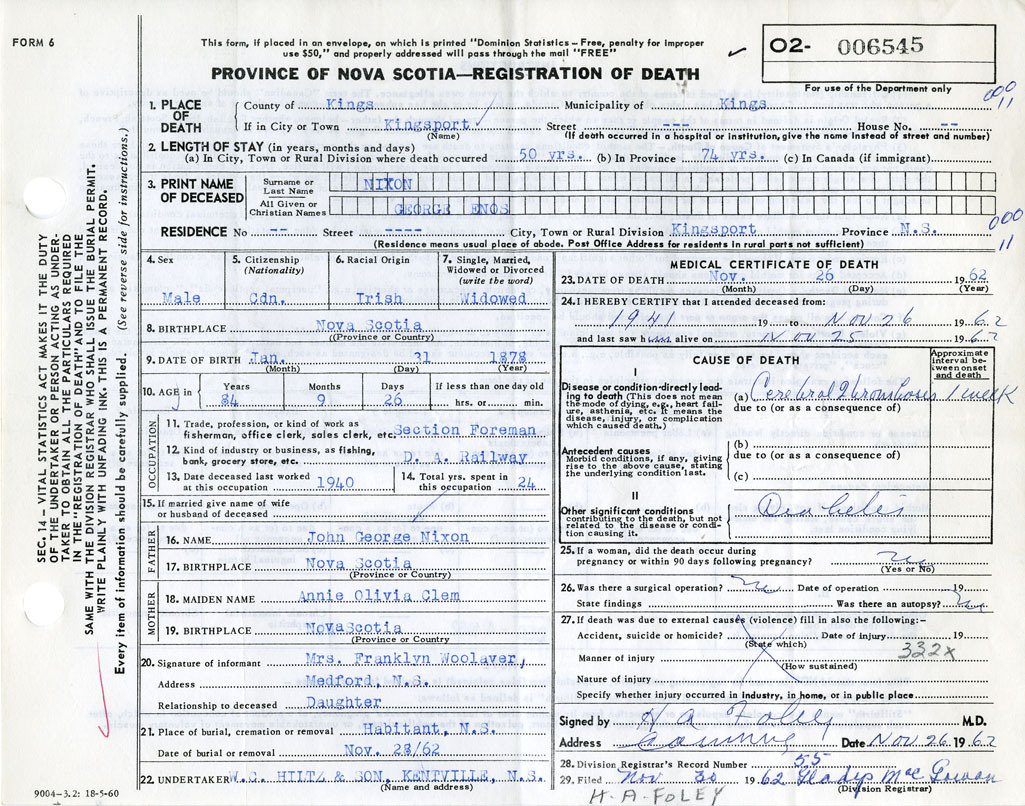 FORM 6
This form, if placed in an envelope, on which is printed "Dominion Statistics – Free, penalty for improper
use $50," and properly addressed will pass through the mail "FREE"
02- 006545
For use of the Department only
PROVINCE OF NOVA SCOTIA—REGISTRATION OF DEATH
000
11
1. PLACE OF DEATH
County of Kings Municipality of Kings
If in City or Town Kingsport Street --- House No. --
(Name) (If death occurred in a hospital or institution, give the name instead of street and number)
2. LENGTH OF STAY (in years, months and days)
(a) In City, Town or Rural Division where death occurred 50 yrs. (b) In Province 74 yrs. (c) In Canada (if immigrant)
3. PRINT NAME OF DECEASED
Surname or Last Name NIXON
All Given or Christian Names GEORGE ENOS
000
11
RESIDENCE No -- Street ---- City, Town or Rural Division Kingsport Province N.S.
(Residence means usual place of abode. Post Office Address for residents in rural parts not sufficient)
4. Sex 5. Citizenship (Nationality) 6. Racial Origin 7. Single, Married, Widowed or Divorced (write the word)
Male Cdn. Irish Widowed
8. BIRTHPLACE Nova Scotia
((Province or Country)
9. DATE OF BIRTH Jan. 31 1878
(Month) (Day) (Year)
10. AGE in Years Months Days If less than one day old
84 9 26 hrs. or min.
OCCUPATION
11. Trade, profession, or kind of work as
fisherman, office clerk, sales clerk, etc. Section Foreman
12. Kind of industry or business, as fishing,
bank, grocery store, etc. D. A. Railway
13. Date deceased last worked at this occupation 1940
14. Total yrs. spent in this occupation 24
15. If married give name of wife
or husband of deceased
FATHER
16. NAME John George Nixon
17. BIRTHPLACE Nova Scotia
(Province or Country)
MOTHER
18. MAIDEN NAME Annie Olivia Clem
19. BIRTHPLACE NovaScotia
(Province or Country
20. Signature of informant Mrs. Franklyn Woolaver,
Address Medford, N.S.
Relationship to deceased Daughter
21. Place of burial, cremation or removal Habitant, N.S.
Date of burial or removal Nov. 28/62
22. UNDERTAKER W.C. HILTZ & SON, KENTVILLE, N.S.
(Name and address)
MEDICAL CERTIFICATE OF DEATH
23. DATE OF DEATH Nov. 26 1962
(Month) (Day) (Year)
24. I HEREBY CERTIFY that I attended deceased from:
1941 19 to Nov 26 1962
and last saw him alive on Nov 25 1962
CAUSE OF DEATH
Approximate interval between onset and death
I
Disease or condition directly leading to death (This does not mean
the mode of dying, e.g., heart failure, asthenia, etc. It means the
disease, injury, or complication
which caused death.)
(a) Cerebral Thrombosis 1 week
due to (or as a consequence of)
Antecedent causes
Morbid conditions, if any, giving
rise to the above cause, stating
the underlying condition last.
(b)
due to (or as a consequence of)
(c)
II
Other significant conditions
contributing to the death, but not
related to the disease or condition causing it.
Diabetes
25. If a woman, did the death occur during
pregnancy or within 90 days following pregnancy? no
(Yes or No)
26. Was there a surgical operation? no Date of operation 19
State findings Was there an autopsy? no
27. If death was due to external causes (violence) fill in also the following:-
Accident, suicide or homicide? Date of injury 19
(State which)
332x
Manner of injury
(How sustained)
Nature of injury
Specify whether injury occurred in industry, in home, or in public place
Signed by H A Foley M.D.
Address Canning Date Nov 26 1962
28. Division Registrar's Record Number 55
29. Filed Nov 30 1962 Gladys MacGowan
(Division Registrar)
H. A. FOLEY
SEC. 14 – VITAL STATISTICS ACT MAKES IT THE DUTY
OF THE UNDERTAKER OR PERSON ACTING AS UNDER-
TAKER TO OBTAIN ALL THE PARTICULARS REQUIRED
IN THE "REGISTRATION OF DEATH" AND TO FILE THE
SAME WITH THE DIVISION REGISTRAR WHO SHALL ISSUE THE BURIAL PERMIT.
WRITE PLAINLY WITH UNFADING INK. THIS IS A PERMANENT RECORD.
Every item of information should be carefully supplied. (See reverse side for instructions.)
9004-3.2: 18-5-60